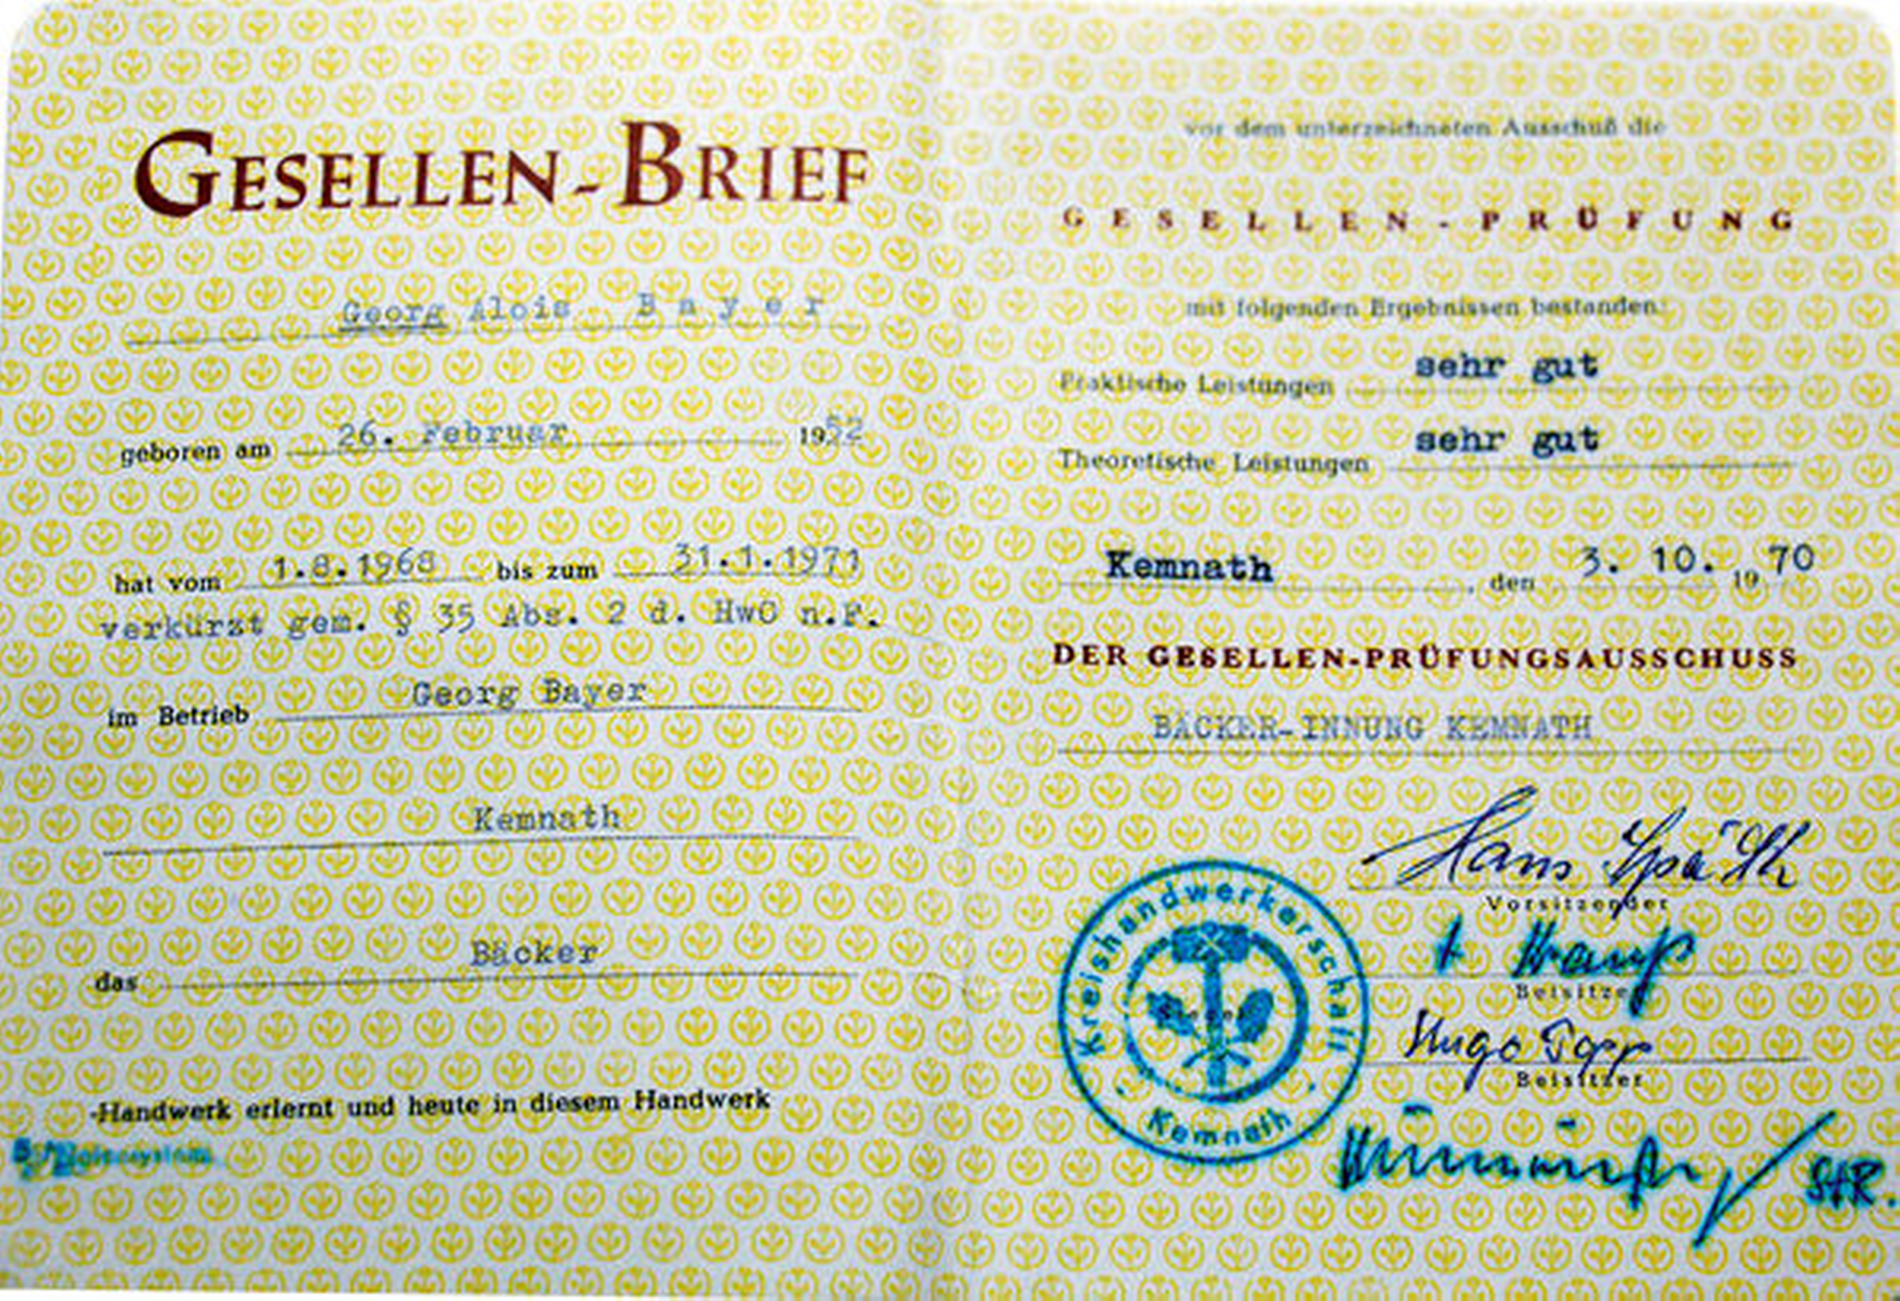 GESELLEN-BRIEF
Georg Alois Bayer
geboren am 26. Februar 1952
hat vom 1.8.1968 bis zum 31.1.1971
verkürzt gem. § 35 Abs. 2 d. HwO n.F.
im Betrieb Georg Bayer
Kemnath
das Bäcker
-Handwerk erlernt und heute in diesem Handwerk
vor dem unterzeichneten Ausschuß die
GESELLEN-PRÜFUNG
mit folgenden Ergebnissen bestanden:
Praktische Leistungen sehr gut
Theoretische Leistungen sehr gut
Kemnath, den 3. 10. 1970
DER GESELLEN-PRÜFUNGSAUSSCHUSS
BÄCKER-INNUNG KEMNATH
Hans Späth
Vorsitzender
Beisitzer
Hugo Popp
Beisitzer
StR.
Kreishandwerkerschaft
Siegel
Kemnath